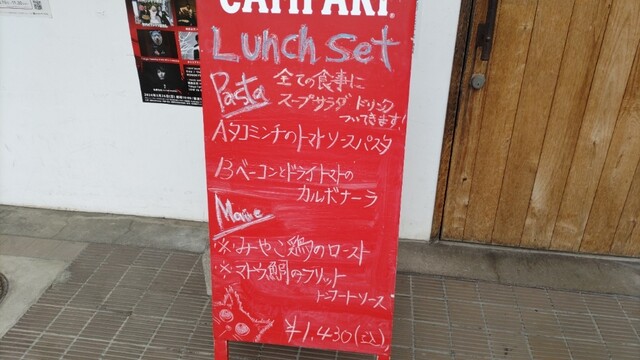 CAMPARI®
Lunch Set
Pasta
全ての食事に
スープサラダ ドリンク
ついてきます!
Aタコミンチのトマトソースパスタ
Bベーコンとドライトマトの
カルボナーラ
Maine
※みやこ鶏のロースト
※マトウ鯛のフリット
トンナートソース
¥1,430(税込)